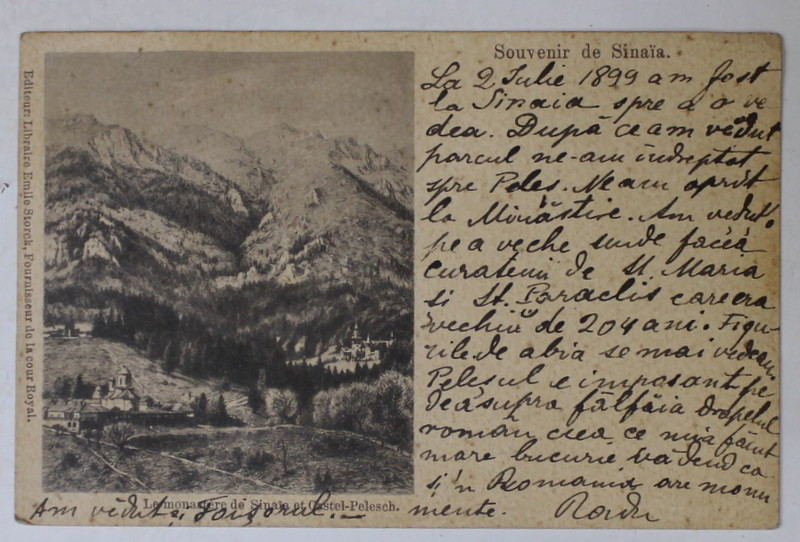 Souvenir de Sinaïa.
La 2 Iulie 1899 am fost
la Sinaia spre a o ve
dea. După ce am vĕdut
parcul ne-am îndreptat
spre Peleș. Ne am oprit
la Minăstire. Am vedut'o
pe a veche unde făcea
curatenii de St. Maria
si St. Paraclis care era
vechiu de 204 ani. Figu-
rile de abia se mai vedeau.
Peleșul e imposant pe
deasupra fâlfâia drapelul
roman ceea ce mia făcut
mare bucurie vădend ca
și'n Romania are monu
mente. Radu
Am vĕdut și Foișorul.
Le monastère de Sinaia et Castel-Pelesch.
Editeur: Libraire Emile Storck, Fournisseur de la cour Royal.